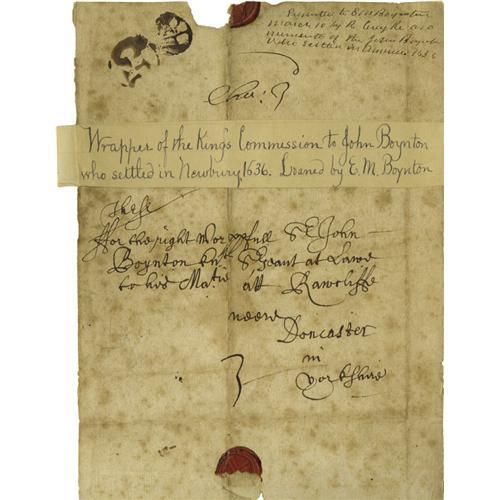 Presented to E M Boynton
March 10 by
memento of the John Boynton
who settled in America 1636
Wrapper of the King's Commission to John Boynton
who settled in Newbury, 1636. Loaned by E. M. Boynton
These
ffor the right Worppfull Sr John
Boynton knt Sgeant at Lawe
to his Matie att Rawcliffe
neere
Doncaster
in
Yorkshire